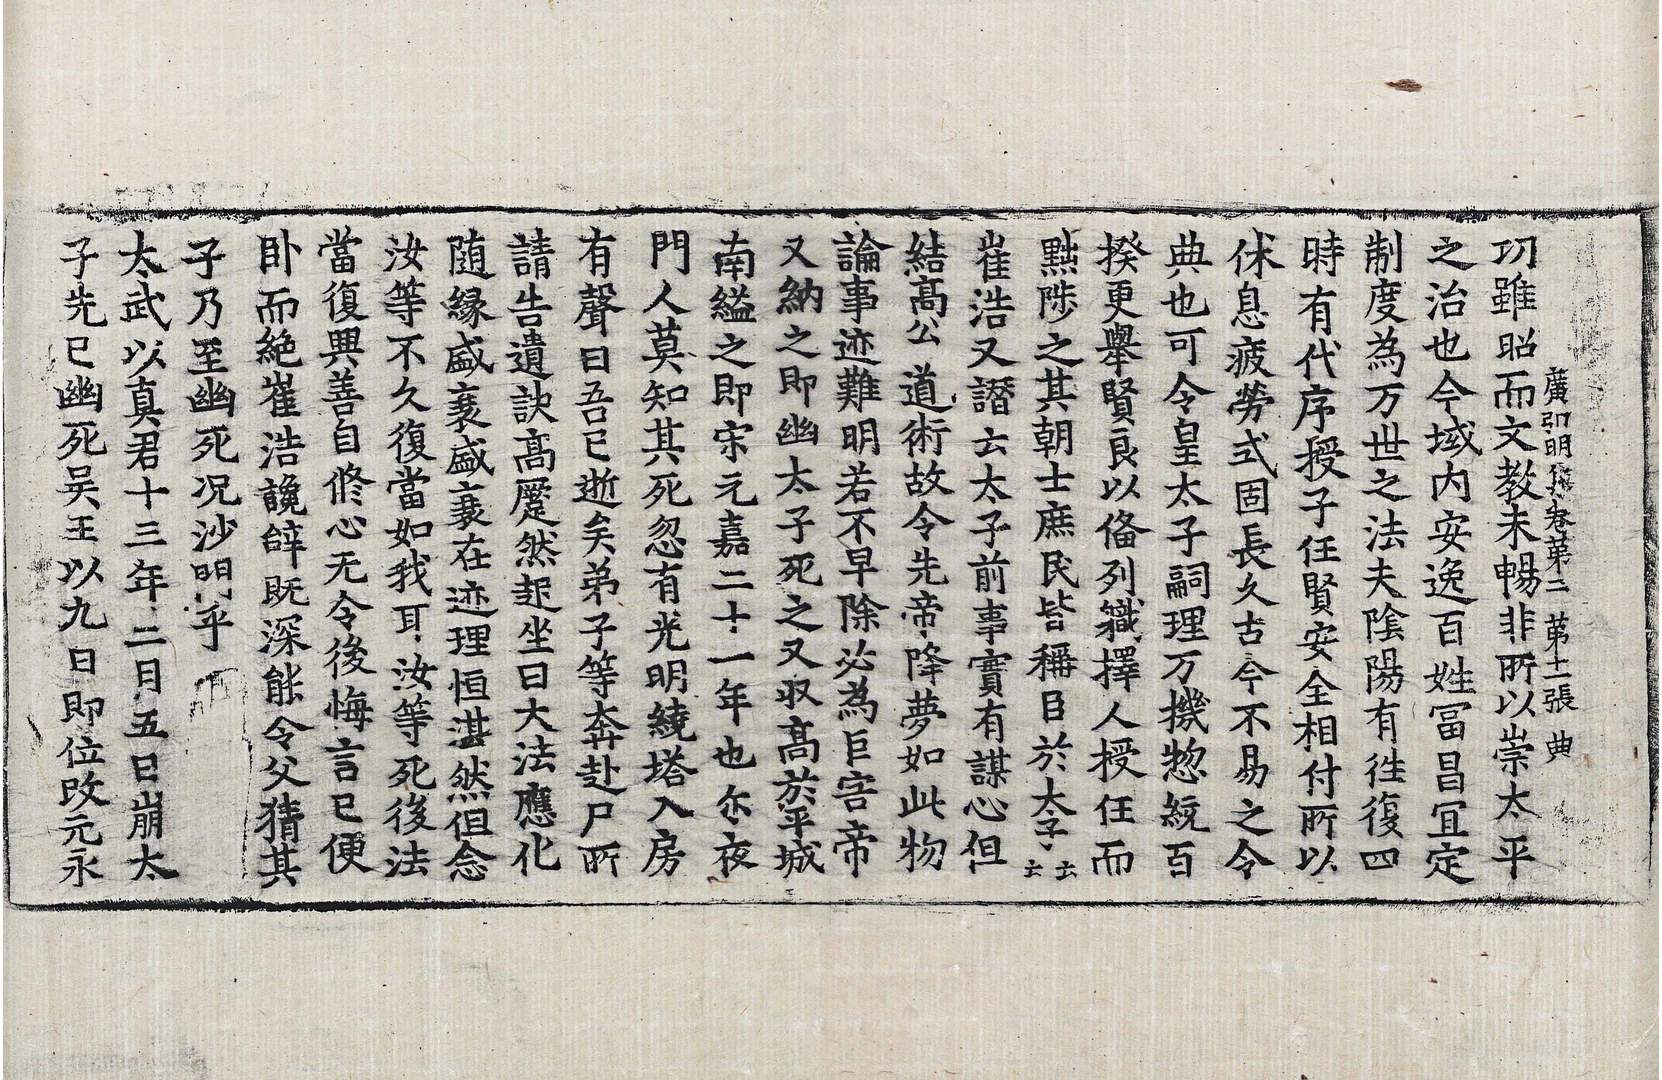 廣弘明集卷第二 第十二張 典
功雖昭而文教未暢非所以崇太平
之治也今域内安逸百姓冨昌宜定
制度為万世之法夫陰陽有徃復四
時有代序授子任賢安全相付所以
休息疲勞式固長久古今不易之令
典也可令皇太子嗣理万機惣統百
揆更舉賢良以俻列軄擇人授任而
黜陟之其朝士庶民皆稱臣於太子云云
崔浩又譖云太子前事實有謀心但
結髙公道術故令先帝降夢如此物
論事迹難明若不早除必為巨害帝
又納之即幽太子死之又収髙於平城
南縊之即宋元嘉二十一年也尒夜
門人莫知其死忽有光明繞塔入房
有聲曰吾已逝矣弟子等奔赴尸所
請告遺訣髙蹷然起坐曰大法應化
随縁盛衰盛衰在迹理恒湛然但念
汝等不久復當如我耳汝等死後法
當復興善自修心无令後悔言已便
卧而絶崔浩讒辝既深能令父猜其
子乃至幽死况沙門乎
太武以真君十三年二月五日崩太
子先已幽死吴王以九日即位改元永